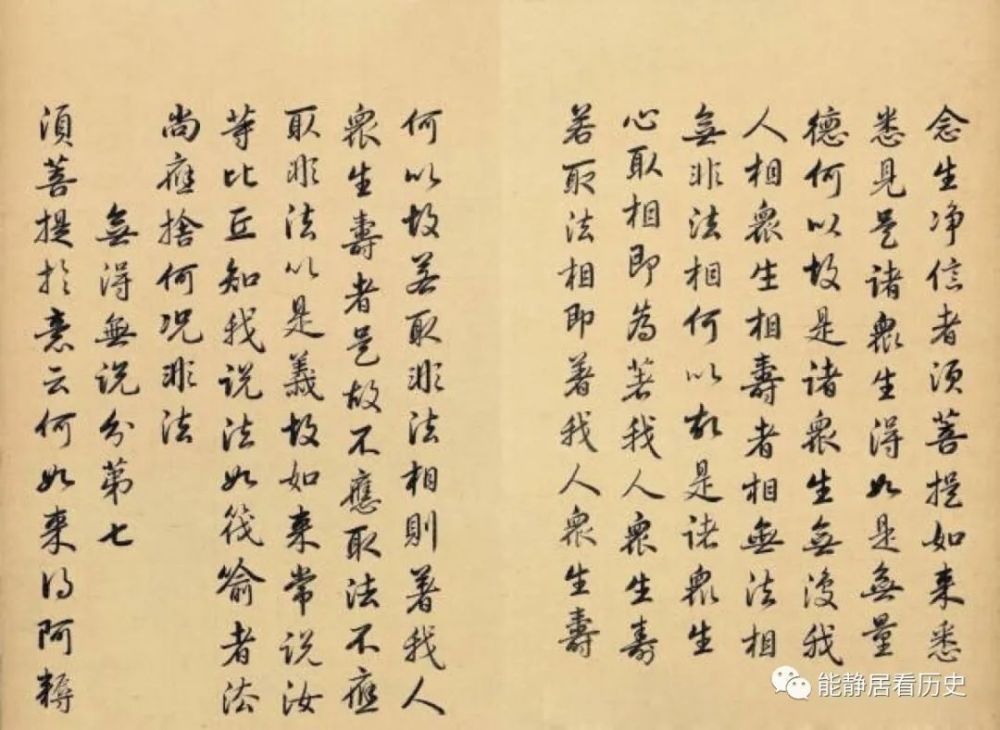 念生净信者須菩提如来悉
悉見是諸衆生得如是無量
德何以故是諸衆生無復我
人相衆生相壽者相無法相
無非法相何以故是諸衆生
心取相即為著我人衆生壽
若取法相即著我人衆生壽
何以故若取非法相則著我人
衆生壽者是故不應取法不應
取非法以是義故如来常説汝
等比丘知我説法如筏喻者法
尚應捨何況非法
無得無説分第七
須菩提於意云何如来得阿耨
能静居看历史